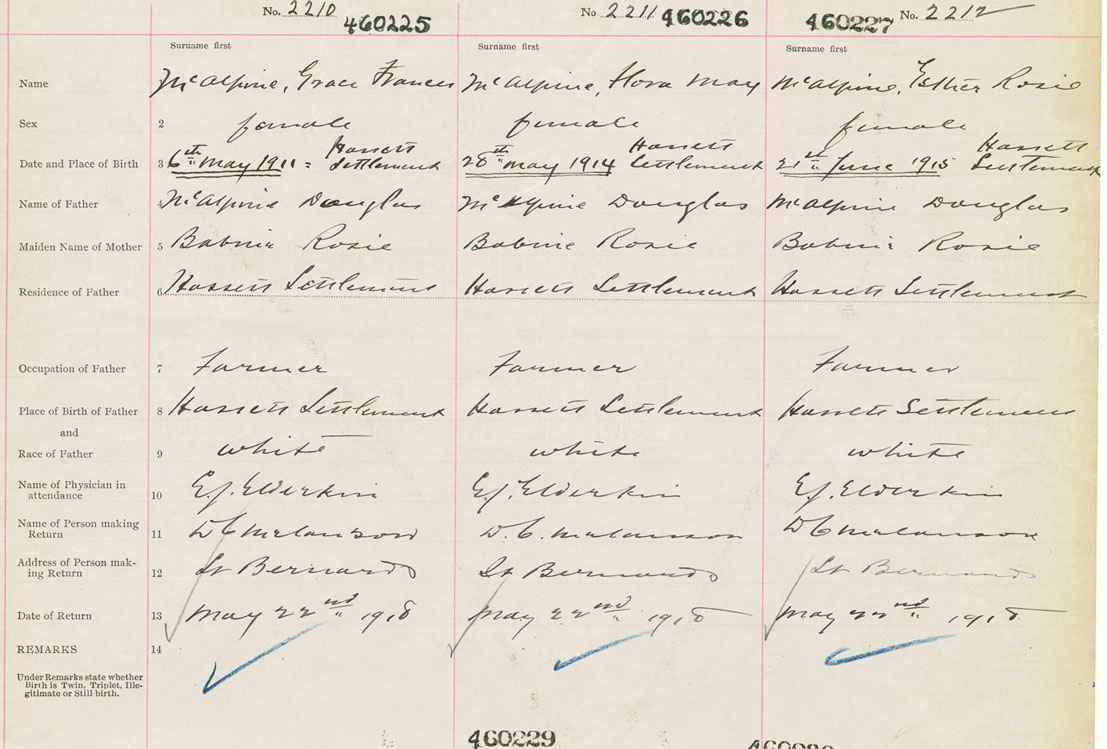 No. 2210 460225 No. 2211 460226 460227 No. 2212
Surname first Surname first Surname first
Name McAlpine, Grace Frances McAlpine, Flora May McAlpine, Esther Rosie
Sex 2 female female female
Date and Place of Birth 3 6th May 1911 = Hassetts Settlement 28th May 1914 Hassetts Settlement 21st June 1915 Hassetts Settlement
Name of Father 4 McAlpine Douglas McAlpine Douglas McAlpine Douglas
Maiden Name of Mother 5 Babine Rosie Babine Rosie Babine Rosie
Residence of Father 6 Hassetts Settlement Hassetts Settlement Hassetts Settlement
Occupation of Father 7 Farmer Farmer Farmer
Place of Birth of Father 8 Hassetts Settlement Hassetts Settlement Hassetts Settlement
and
Race of Father 9 white white white
Name of Physician in
attendance 10 E.J. Elderkin E.J. Elderkin E.J. Elderkin
Name of Person making
Return 11 D C Melanson D. C. Melanson D C Melanson
Address of Person mak-
ing Return 12 St Bernards St Bernards St Bernards
Date of Return 13 May 22nd 1918 May 22nd 1918 May 22nd 1918
REMARKS 14
Under Remarks state whether
Birth is Twin, Triplet, Ille-
gitimate or Still birth.
460229